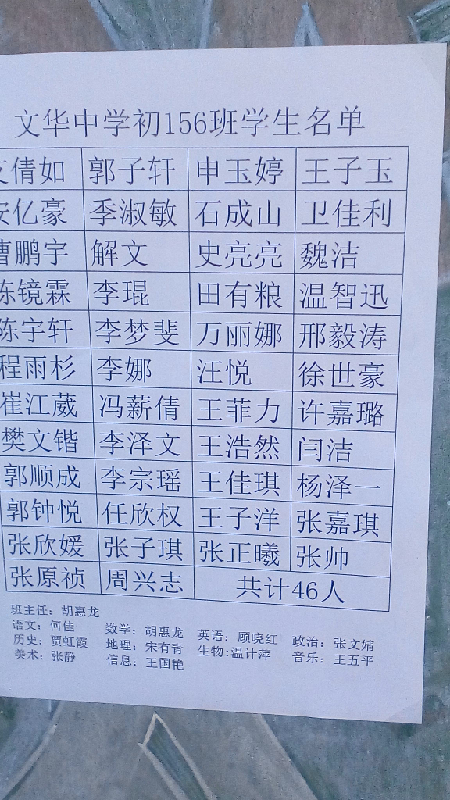 文华中学初156班学生名单
倩如 郭子轩 申玉婷 王子玉
安亿豪 季淑敏 石成山 卫佳利
曹鹏宇 解文 史亮亮 魏洁
陈镜霖 李琨 田有粮 温智迅
陈宇轩 李梦斐 万丽娜 邢毅涛
程雨杉 李娜 汪悦 徐世豪
崔江葳 冯薪倩 王菲力 许嘉璐
樊文锴 李泽文 王浩然 闫洁
郭顺成 李宗瑶 王佳琪 杨泽一
郭钟悦 任欣权 王子洋 张嘉琪
张欣媛 张子琪 张正曦 张帅
张原祯 周兴志 共计46人
班主任：胡惠龙
语文：何佳 数学：胡惠龙 英语：顾晓红 政治：张文娟
历史：贾虹霞 地理：宋有青 生物：温计萍 音乐：王五平
美术：张静 信息：王国艳